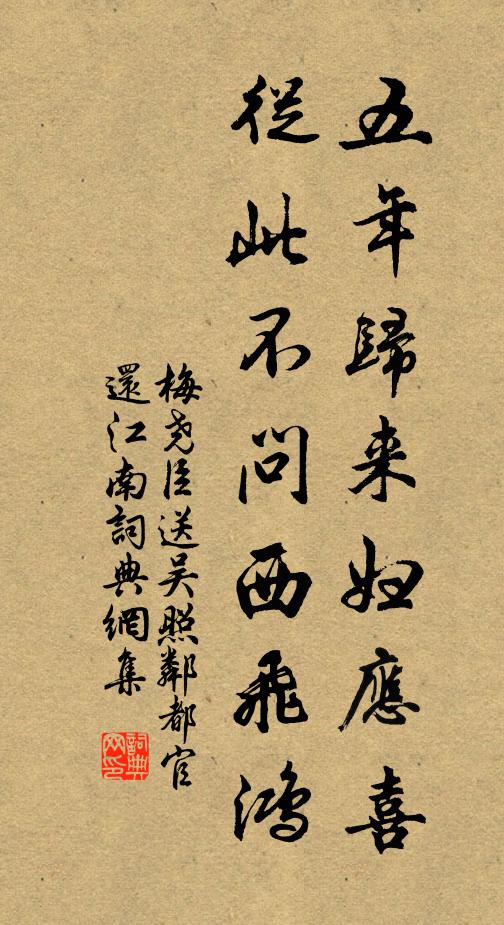 五年歸来妇應喜
從此不問西飛鴻
梅尧臣送吴照鄰都官
還江南詞典網集
詞典网印